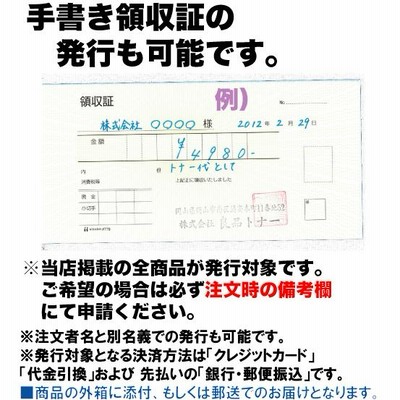 手書き領収証の
発行も可能です。
領収証
例)
No.
株式会社 ○○○○ 様
2012年 2月 29日
金額
¥4980-
内
但 トナー代として
消費税等
上記正に領収いたしました
現金
小切手
株式会社 良品トナー
※当店掲載の全商品が発行対象です。
ご希望の場合は必ず注文時の備考欄
にて申請ください。
※注文者名と別名義での発行も可能です。
※発行対象となる決済方法は「クレジットカード」
「代金引換」および 先払いの「銀行・郵便振込」です。
■商品の外箱に添付、もしくは郵送でのお届けとなります。